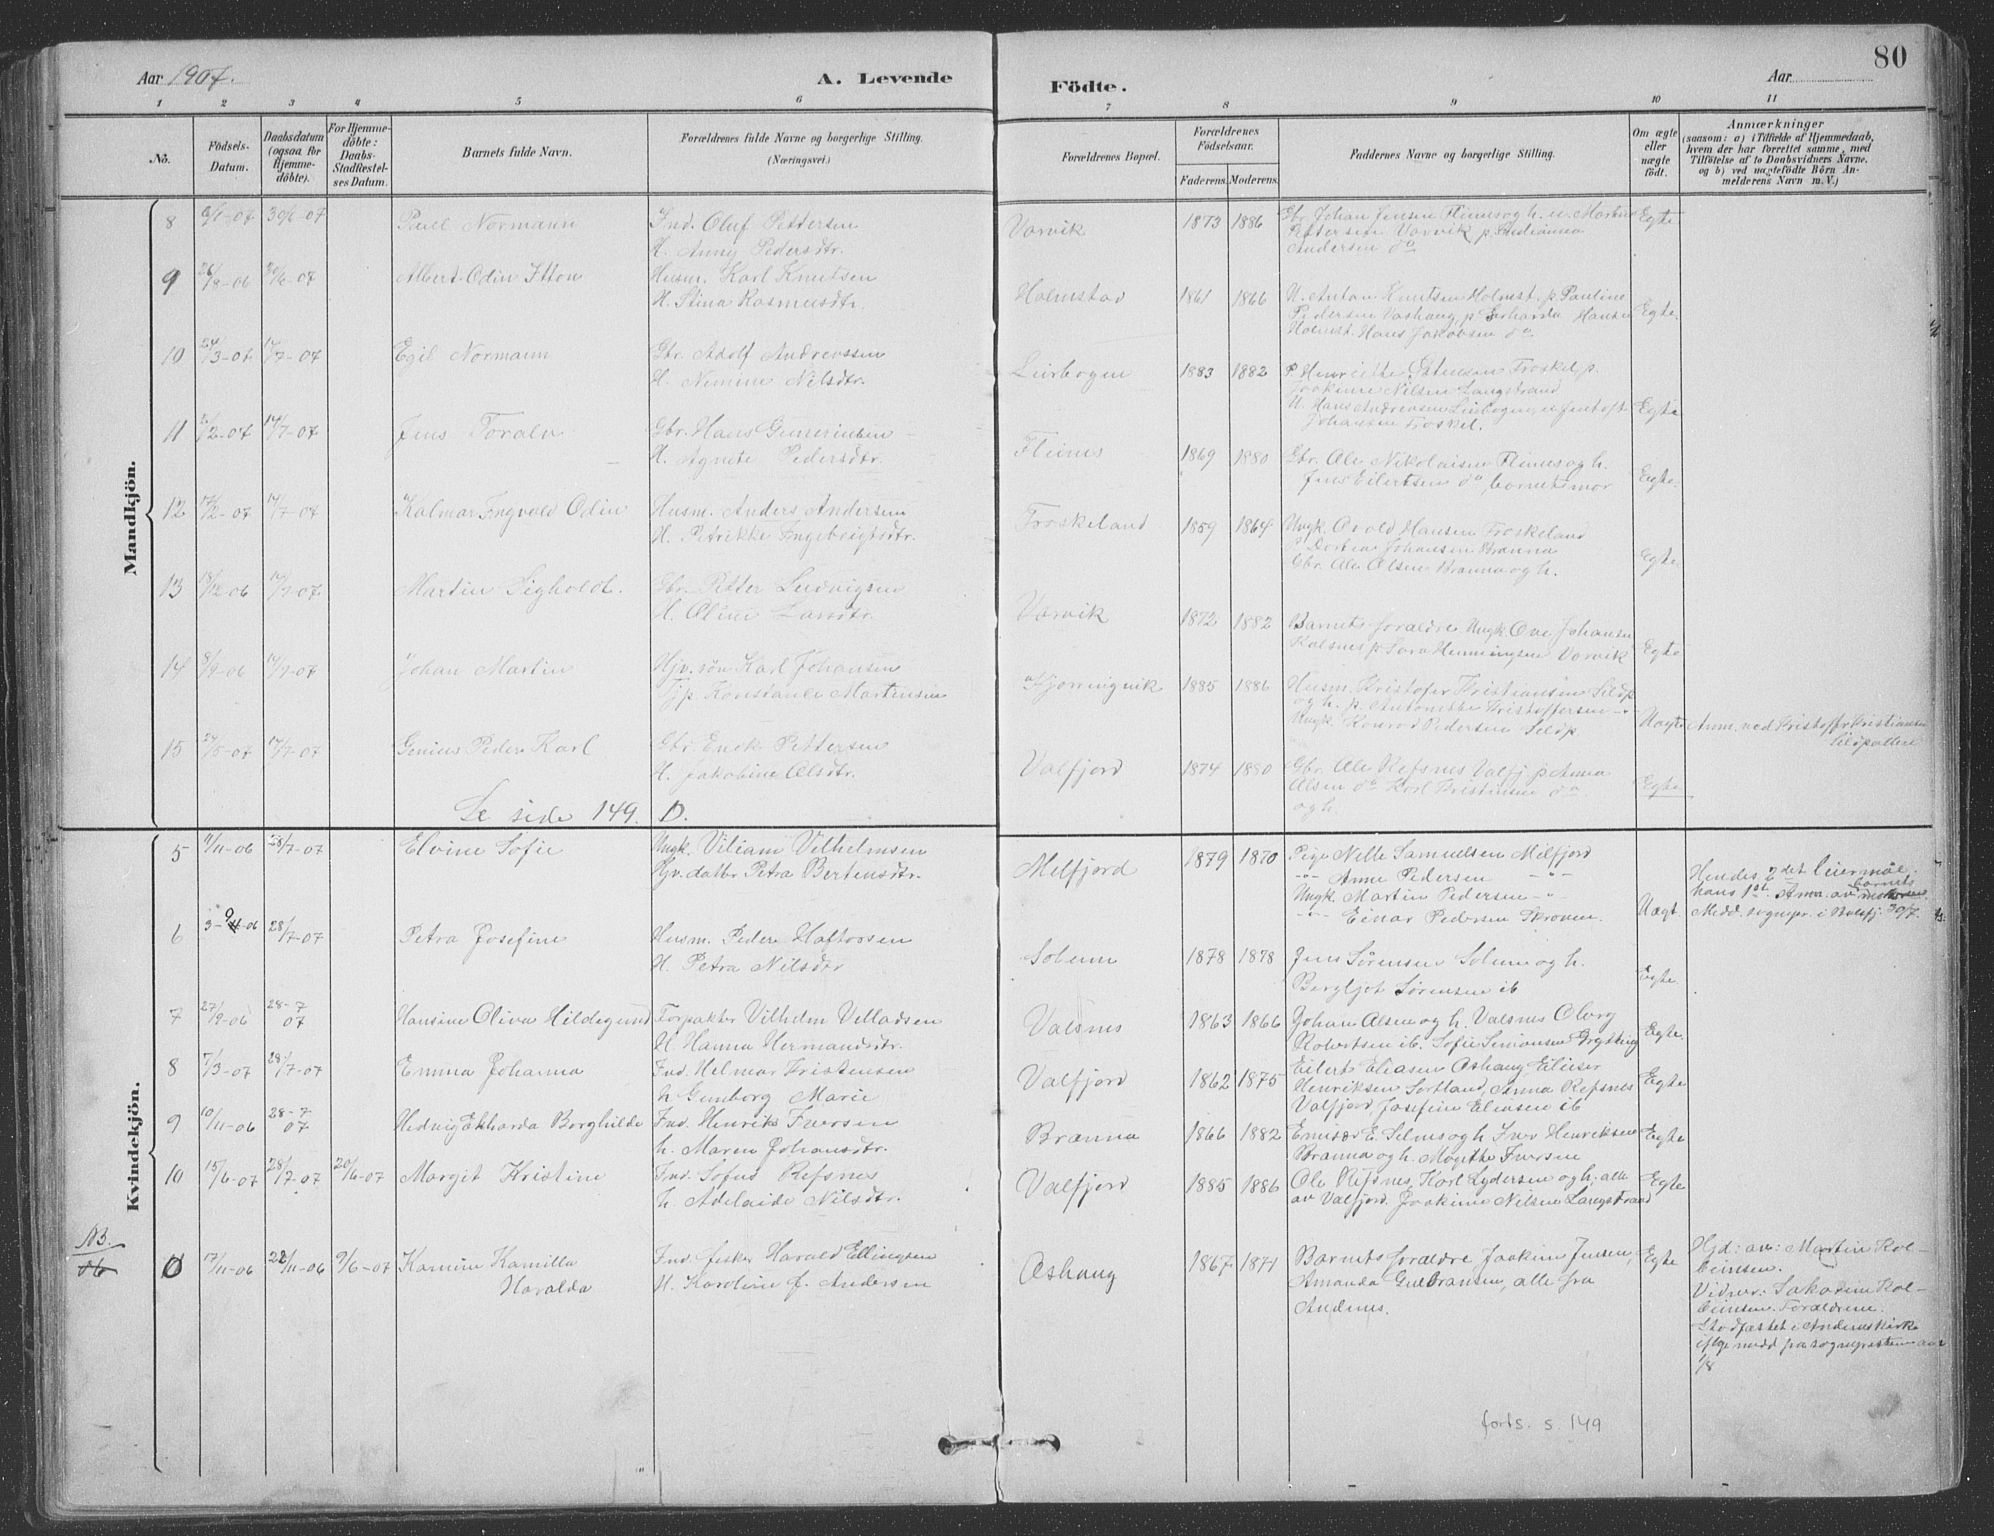 80
Aar 1907.
A. Levende
Födte.
Aar
1 2 3 4 5 6 7 8 9 10 11
No.
Födsels-Datum.
Daabsdatum (ogsaa for Hjemme-döbte).
For Hjemme-döbte: Daabs-Stadfæstel-ses Datum.
Barnets fulde Navn.
Forældrenes fulde Navne og borgerlige Stilling. (Næringsvei.)
Forældrenes Bopæl.
Forældrenes Födselsaar.
Faderens. Moderens.
Faddernes Navne og borgerlige Stilling.
Om ægte eller uægte födt.
Anmærkninger
(saasom: a) i Tilfælde af Hjemmedaab, hvem der har forrettet samme, med Tilföielse af to Daabsvidners Navne, og b) ved uægtefödte Börn Anmelderens Navn m. V.)
Mandkjön.
8 6/1-07 30/6-07 Paul Normann Ind. Oluf Pettersen Vorvik 1873 1886 Gbr. Johan Jensen Flines og h. u. Markus Egte
H. Anny Pedersdtr. Pettersen Vorvik p.
Andersen do
9 26/8-06 30/6-07 Albert Odin Itton Husm. Karl Knutsen Holmstad 1861 1866 U. Anton Knutsen Holmst. p. Pauline Egte.
H. Stina Rasmusdtr. Pedersen Vashaug, p. Gerharda Hansen
Holmst. Hans Jakobsen do
10 24/3-07 14/7-07 Egil Normann Gbr. Adolf Andreassen Leirbogen 1883 1882 P. Henriette Froskel. p.
H. Nemine Nilsdtr. Joakime Nilsen Langstrand
U. Hans Andreasen Leirbogen, u. Jentoft Egte
Johansen Froskel.
11 /2-07 14/7-07 Jens Toralv Gbr. Hans Flines 1869 1880 Gbr. Ole Nikolaisen Flines og h.
H. Agnete Pedersdtr. Jens Eilertsen do, barnets mor Egte.
12 17/2-07 14/7-07 Kalmar Ingvald Odin Husm. Anders Andersen Froskeland 1859 1864 Ungk. Ovold Hansen Froskeland
H. Petrikke Ingebrigtsdtr. P. Dortea Johansen Brænna
Gbr. Ole Olsen Brænna og h. Egte
13 18/12-06 14/7-07 Martin Sigholdt. Gbr. Petter Ludvigsen Vorvik 1872 1882 Barnets foraldre Ungk. Ove Johansen
H. Oline Larsdtr. p. Sara Henningsen Vorvik Egte
14 8/9-06 14/7-07 Johan Martin Hjv. søn Karl Johansen Kjørringvik 1885 1886 Husm. Kristofer Kristiansen Sildp.
Tjp. Konstanse Martensen og h. p. Antonette Kristoffersen -"-
Ungk. Konrad Pedersen Sildp. Uegte Anm. ved Kristoffer Kristiansen
Sildpollen
15 27/5-07 14/7-07 Genius Peder Karl Gbr. Enok Pettersen Valfjord 1874 1880 Gbr. Ole Refsnes Valfj. p. Anna
H. Jakobine Olsdtr. Olsen do Karl Kristensen do Egte
og h.
Se side 149. D.
Kvindekjön.
5 11/11-06 28/7-07 Elvine Sofie Ungk. Viliam Vilhelmsen Melfjord 1879 1870 Pige Nelle Samuelsen Milfjord
Hjv. datter Petra Bertensdtr. -"- Anne Pedersen -"-
Ungk. Martin Pedersen -"-
-"- Einar Pedersen Skroven. Uægt
Hendes 2det leiermål
hans 1st. Anm. av barnets
Medd. sognepr. i 30/7.
6 3-9-06 28/7-07 Petra Josefine Husm. Peder Haftorsen Soleim 1878 1878 Jens Sørensen Soleim og h.
H. Petra Nilsdtr Bergljot Sørensen ib Egte
7 27/9-06 28-7 07 Hansine Oliva Hildegund Forpakter Vilhelm Velladsen Valsnes 1863 1866 Johan Olsen og h. Valsnes Olbrg
H. Hanna Hermandsdtr. Robertsen ib. Sofie Simonsen Grytting Egte.
8 7/3-07 28/7-07 Emma Johanna Ind. Helmar Kristensen Valfjord 1862 1875 Eilert Eliasen Oshaug, Elieser
h Gunborg Marie Henriksen Sortland, Anna Refsnes Egte
Valfjord Josefine Eliasen ib
9 10/11-06 28-7 07 Hedvig Ekharda Borghilde Ind. Henrik Iversen Brænna 1866 1882 E. Selnes og h Iver Henriksen Egte
h. Maren Johansdtr. Brænna og h. Iversen
10 15/6-07 28/7-07 20/6-07 Margit Kristine Ind. Sofus Refsnes Valfjord 1885 1886 Ole Refsnes, Karl Lydersen og h, alle Egte
h. Adelaide Nilsdtr. av Valfjord. Joakime Nilsen Langstrand
NB.
06 0 17/11-06 22/11-06 9/6-07 Kamine Kamilla Ind. fisker Harald Ellingsen Oshaug 1867 1871 Barnets foraldre Joakim Jensen, Egte
Haralda H. Karoline f. Andersen Amanda Gulbransen, alle fra
Andenes.
Hjd: av: Martin Kol-
beinsen.
Vidner: Sakarine Kol-
beinsen. Foraldrene.
Stadfæstet i Andenes kirke
ifølge medd fra sognepresten
1/8
forts. s. 149